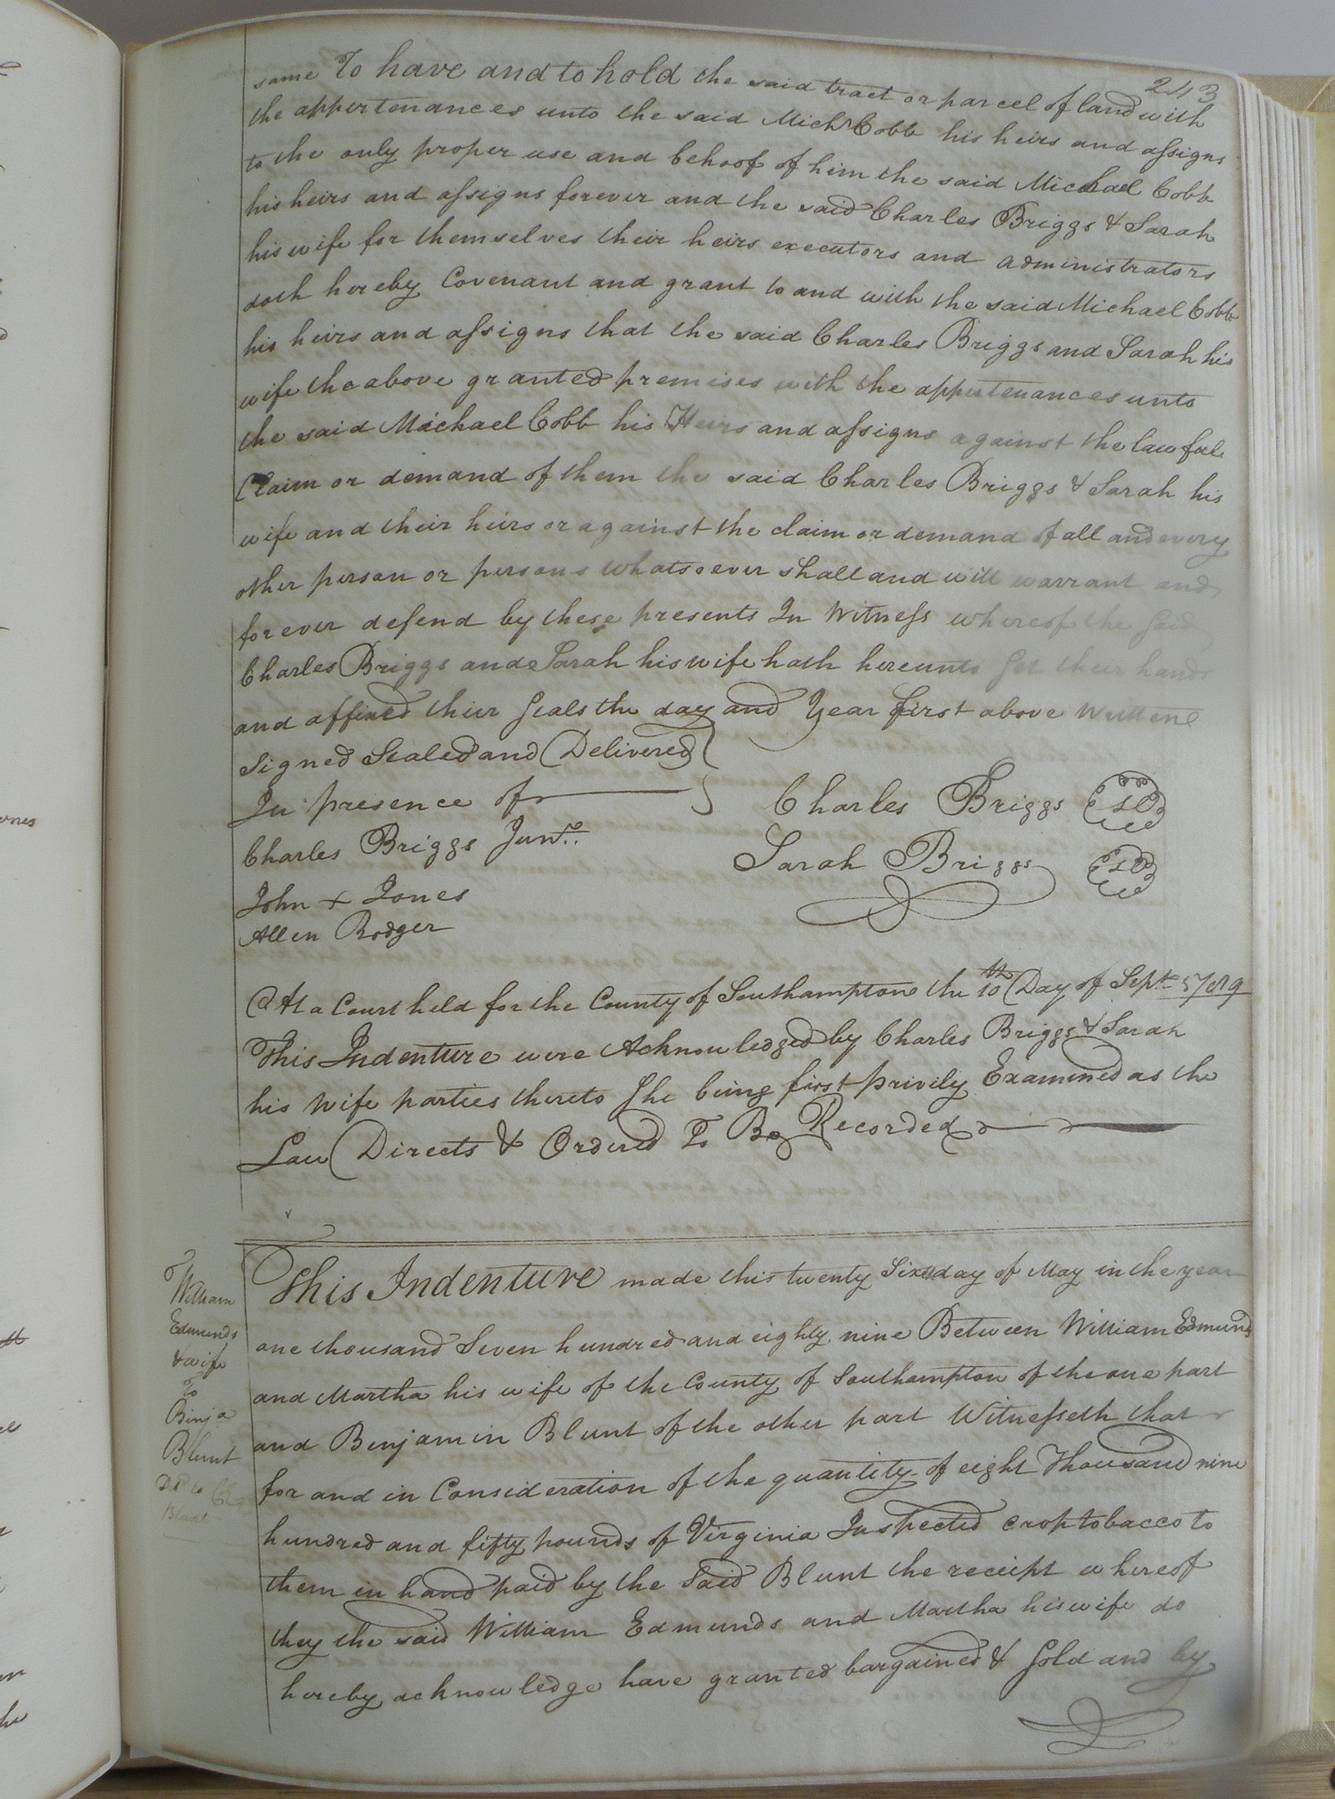 243
same To have and to hold the said tract or parcel of land with
the appertenances unto the said Michl Cobb his heirs and assigns
to the only proper use and behoof of him the said Micahael Cobb
his heirs and assigns forever and the said Charles Briggs & Sarah
his wife for themselves their heirs executors and administrators
doth hereby Covenant and grant to and with the said Michael Cobb
his heirs and assigns that the said Charles Briggs and Sarah his
wife the above granted premises with the appertenances unto
the said Michael Cobb his Heirs and assigns against the lawfull
Claim or demand of them the said Charles Briggs & Sarah his
wife and their heirs or against the claim or demand of all and every
other person or persons whatsoever shall and will warrant and
forever defend by these presents In Witness whereof the said
Charles Briggs and Sarah his wife hath hereunto set their hands
and affixed their seals the day and Year first above Written
Signed Sealed and Delivered
In presence of
Charles Briggs LS
Charles Briggs Junr.
Sarah Briggs LS
John + Jones
Allen Rodger
At a Court held for the County of Southampton the 10th Day of Sept 1789
This Indenture were Acknowledged by Charles Briggs & Sarah
his Wife parties thereto She being first privily Examined as the
Law Directs & Ordered To Be Recorded
William
Edmunds
& wife
To
Binja
Blunt
This Indenture made this twenty Sixth day of May in the year
one thousand Seven hundred and eighty nine Between William Edmunds
and Martha his wife of the County of Southampton of the one part
and Benjamin Blunt of the other part Witnesseth that
for and in Consideration of the quantity of eight Thousand nine
hundred and fifty pounds of Virginia Inspected crop tobacco to
them in hand paid by the Said Blunt the receipt whereof
they the said William Edmunds and Martha his wife do
hereby acknowledge have granted bargained & Sold and by